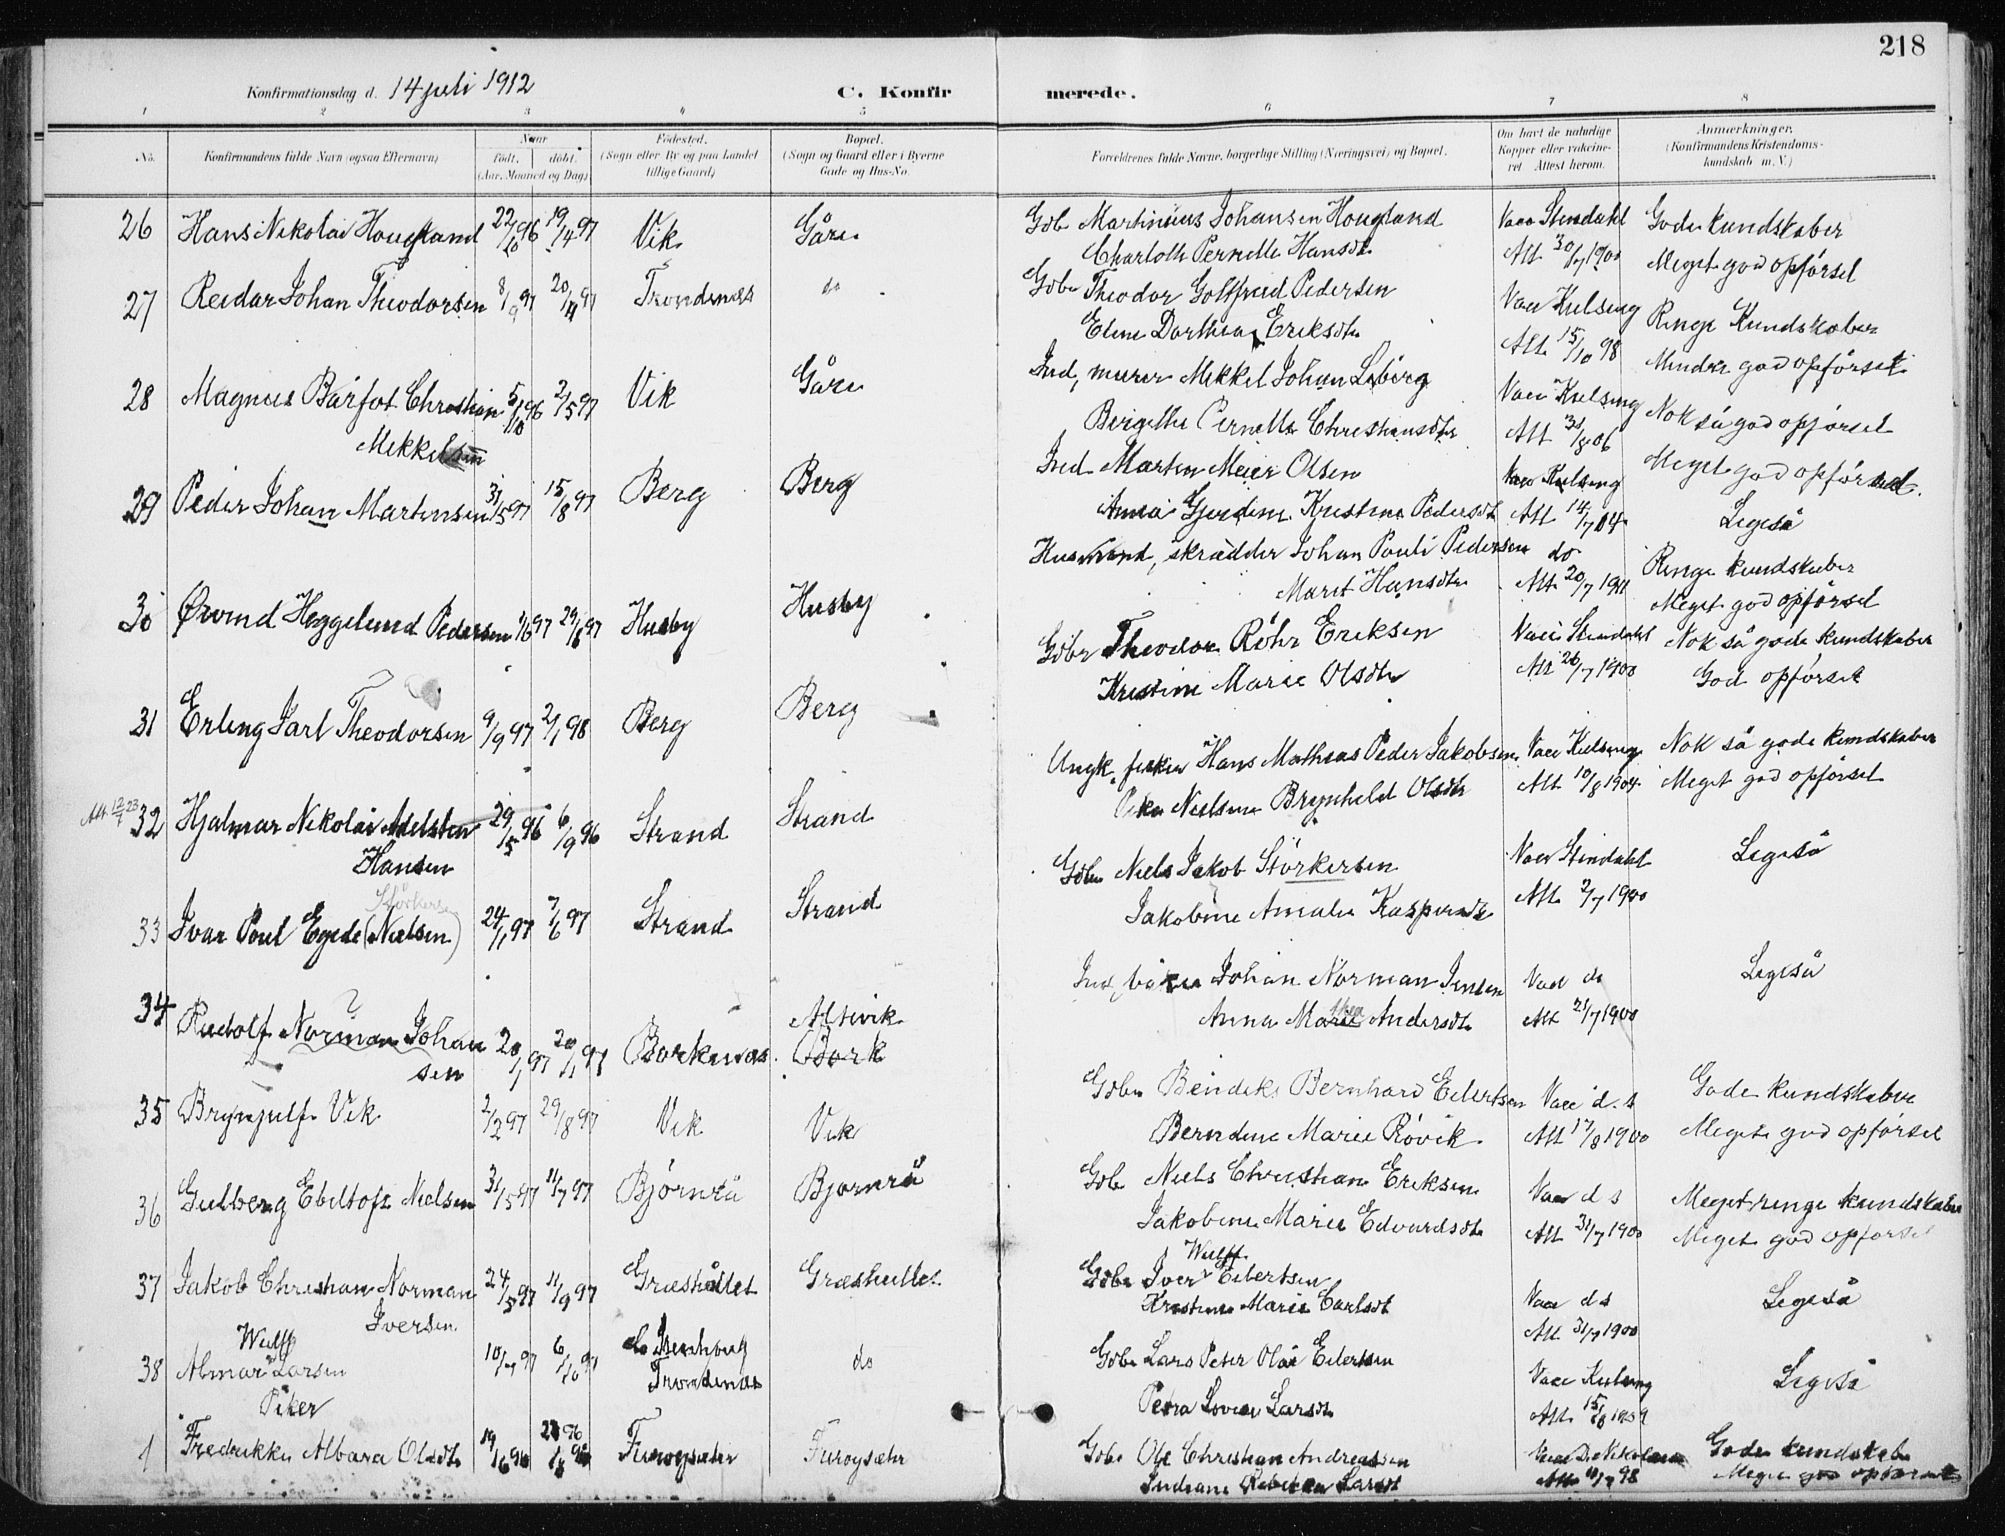 218
Konfirmationsdag d. 14 juli 1912
C. Konfirmerede.
1 2 3 4 5 6 7 8
No. Konfirmandens fulde Navn (ogsaa Efternavn) Naar født. døbt. (Aar, Maaned og Dag) Fødested. (Sogn eller By og paa Landet tillige Gaard) Bopæl. (Sogn og Gaard eller i Byerne Gade og Hus-No. Forældrenes fulde Navne, borgerlige Stilling (Næringsvei) og Bopæl. Om havt de naturlige Kopper eller vaccineret. Attest herom. Anmærkninger. (Konfirmandens Kristendomskundskab m. V.)
26 Hans Nikolai Hougland 22/10 96 19/4 97 Vik Gåre Gdbr Martinius Johansen Hougland Vacc Stendahl Gode kundskaber
Charlotte Pernelle Hansdtr Att 30/7 1900 Meget god opførsel
27 Reidar Johan Theodorsen 8/9 97 20/4 97 Trondenæs do Gdbr Theodor Gottfried Pedersen Vacc Kielseng Ringe Kundskaber
Eline Dorthea Eriksdtr Att 15/10 98 Mindre god opførsel
28 Magnus Barfot Christian Mikkelsen 5/10 96 2/5 97 Vik Gåre Ind, murer Mikkel Johan Liberg Vacc Kielseng Nok så god opførsel
Bergithe Pernella Christiansdtr Att 31/8 06 Meget god opførsel.
29 Peder Johan Martinsen 31/5 97 15/8 97 Berg Berg Ind. Martin Meier Olsen Vacc Kielseng
Anna Gjerdine Kristine Pedersdtr Att 14/7 04 Ligeså
30 Øivind Heggelund Pedersen 29/8 97 Husby Husby Husmand, skrædder Johan Pauli Pedersen do Ringe kundskaber
Marit Hansdtr Att 20/7 1911 Meget god opførsel
31 Erling Jarl Theodorsen 9/9 97 2/1 98 Berg Berg Gdbr Theodor Röhr Eriksen Vacc Stendahl Nok så gode kundskaber
Kristine Marie Olsdtr Att 26/7 1900 God opførsel
Att 12/7 23 32 Hjalmar Nikolai Adelsten Hansen 29/5 96 6/9 96 Strand Strand Ungk. fisker Hans Mathias Peder Jakobsen Vacc Kielseng Nok så gode kundskaber
Pike Nielsine Brynhild Olsdtr Att 10/8 1904 Meget god opførsel
33 Ivar Poul Egede (Nielsen) Størkersen 24/1 97 7/6 97 Strand Strand Gdbr Niels Jakob Størkersen Vacc Stendahl Ligeså
Jakobine Amalie Kaspersdtr Att 2/7 1900
34 Rudolf Norman Johansen ? 20/1 97 Borkenæs Altevik Bork Ind, Johan Norman Jensen Vacc ds Ligeså
Anna Marie Thea Andersdtr Att 21/7 1900
35 Brynjulf Vik 2/2 97 29/8 97 Vik Vik Gdbr Bendiks Bernhard Eilertsen Vacc d.s Gode kundskaber
Berndine Marie Røvik Att 17/8 1900 Meget god opførsel
36 Gudberg Ebeltoft Nielsen 31/5 97 11/7 97 Bjørnrå Bjørnrå Gdbr Niels Christian Eriksen Vacc d s Meget ringe kundskaber
Jakobine Marie Edvardsdtr Att 31/7 1900 Meget god opførsel
37 Jakob Christian Norman Iversen 24/5 97 11/9 97 Græshållet Græshullet Gdbr Iver Wulff Eilertsen Vacc d s Ligeså
Kristine Marie Carlsdt Att 31/7 1900
38 Almar Wulff Larsen 10/7 97 Trondenæs do Gdbr Lars Peter Olai Eilertsen Vacc Kielseng Ligeså
Petra Lovise Larsdt
Piker
1 Fredrikke Albara Olsdtr Furøysæter Furøysæter Gdbr Ole Christian Andreassen Gode kundskab
Indiane Rebekka Larsdt Meget god opførsel